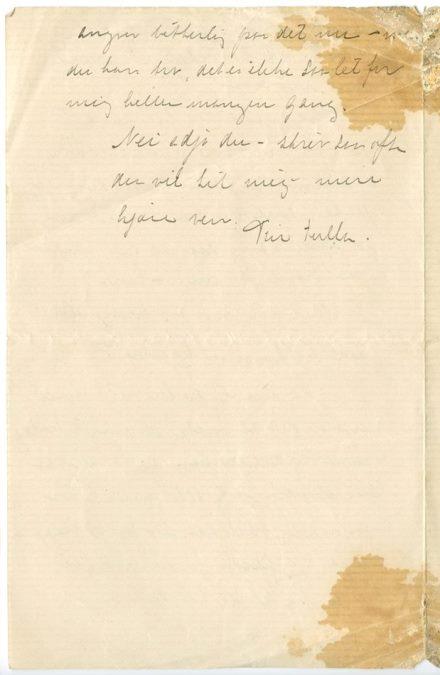 angrer bitterlig paa det nu – 
du kan tro, det er ikke saa let for
mig heller mangen gang.
Nei adjø du – skriv saa ofte
du vil til mig – min
kjære ven.
Din Tulla.